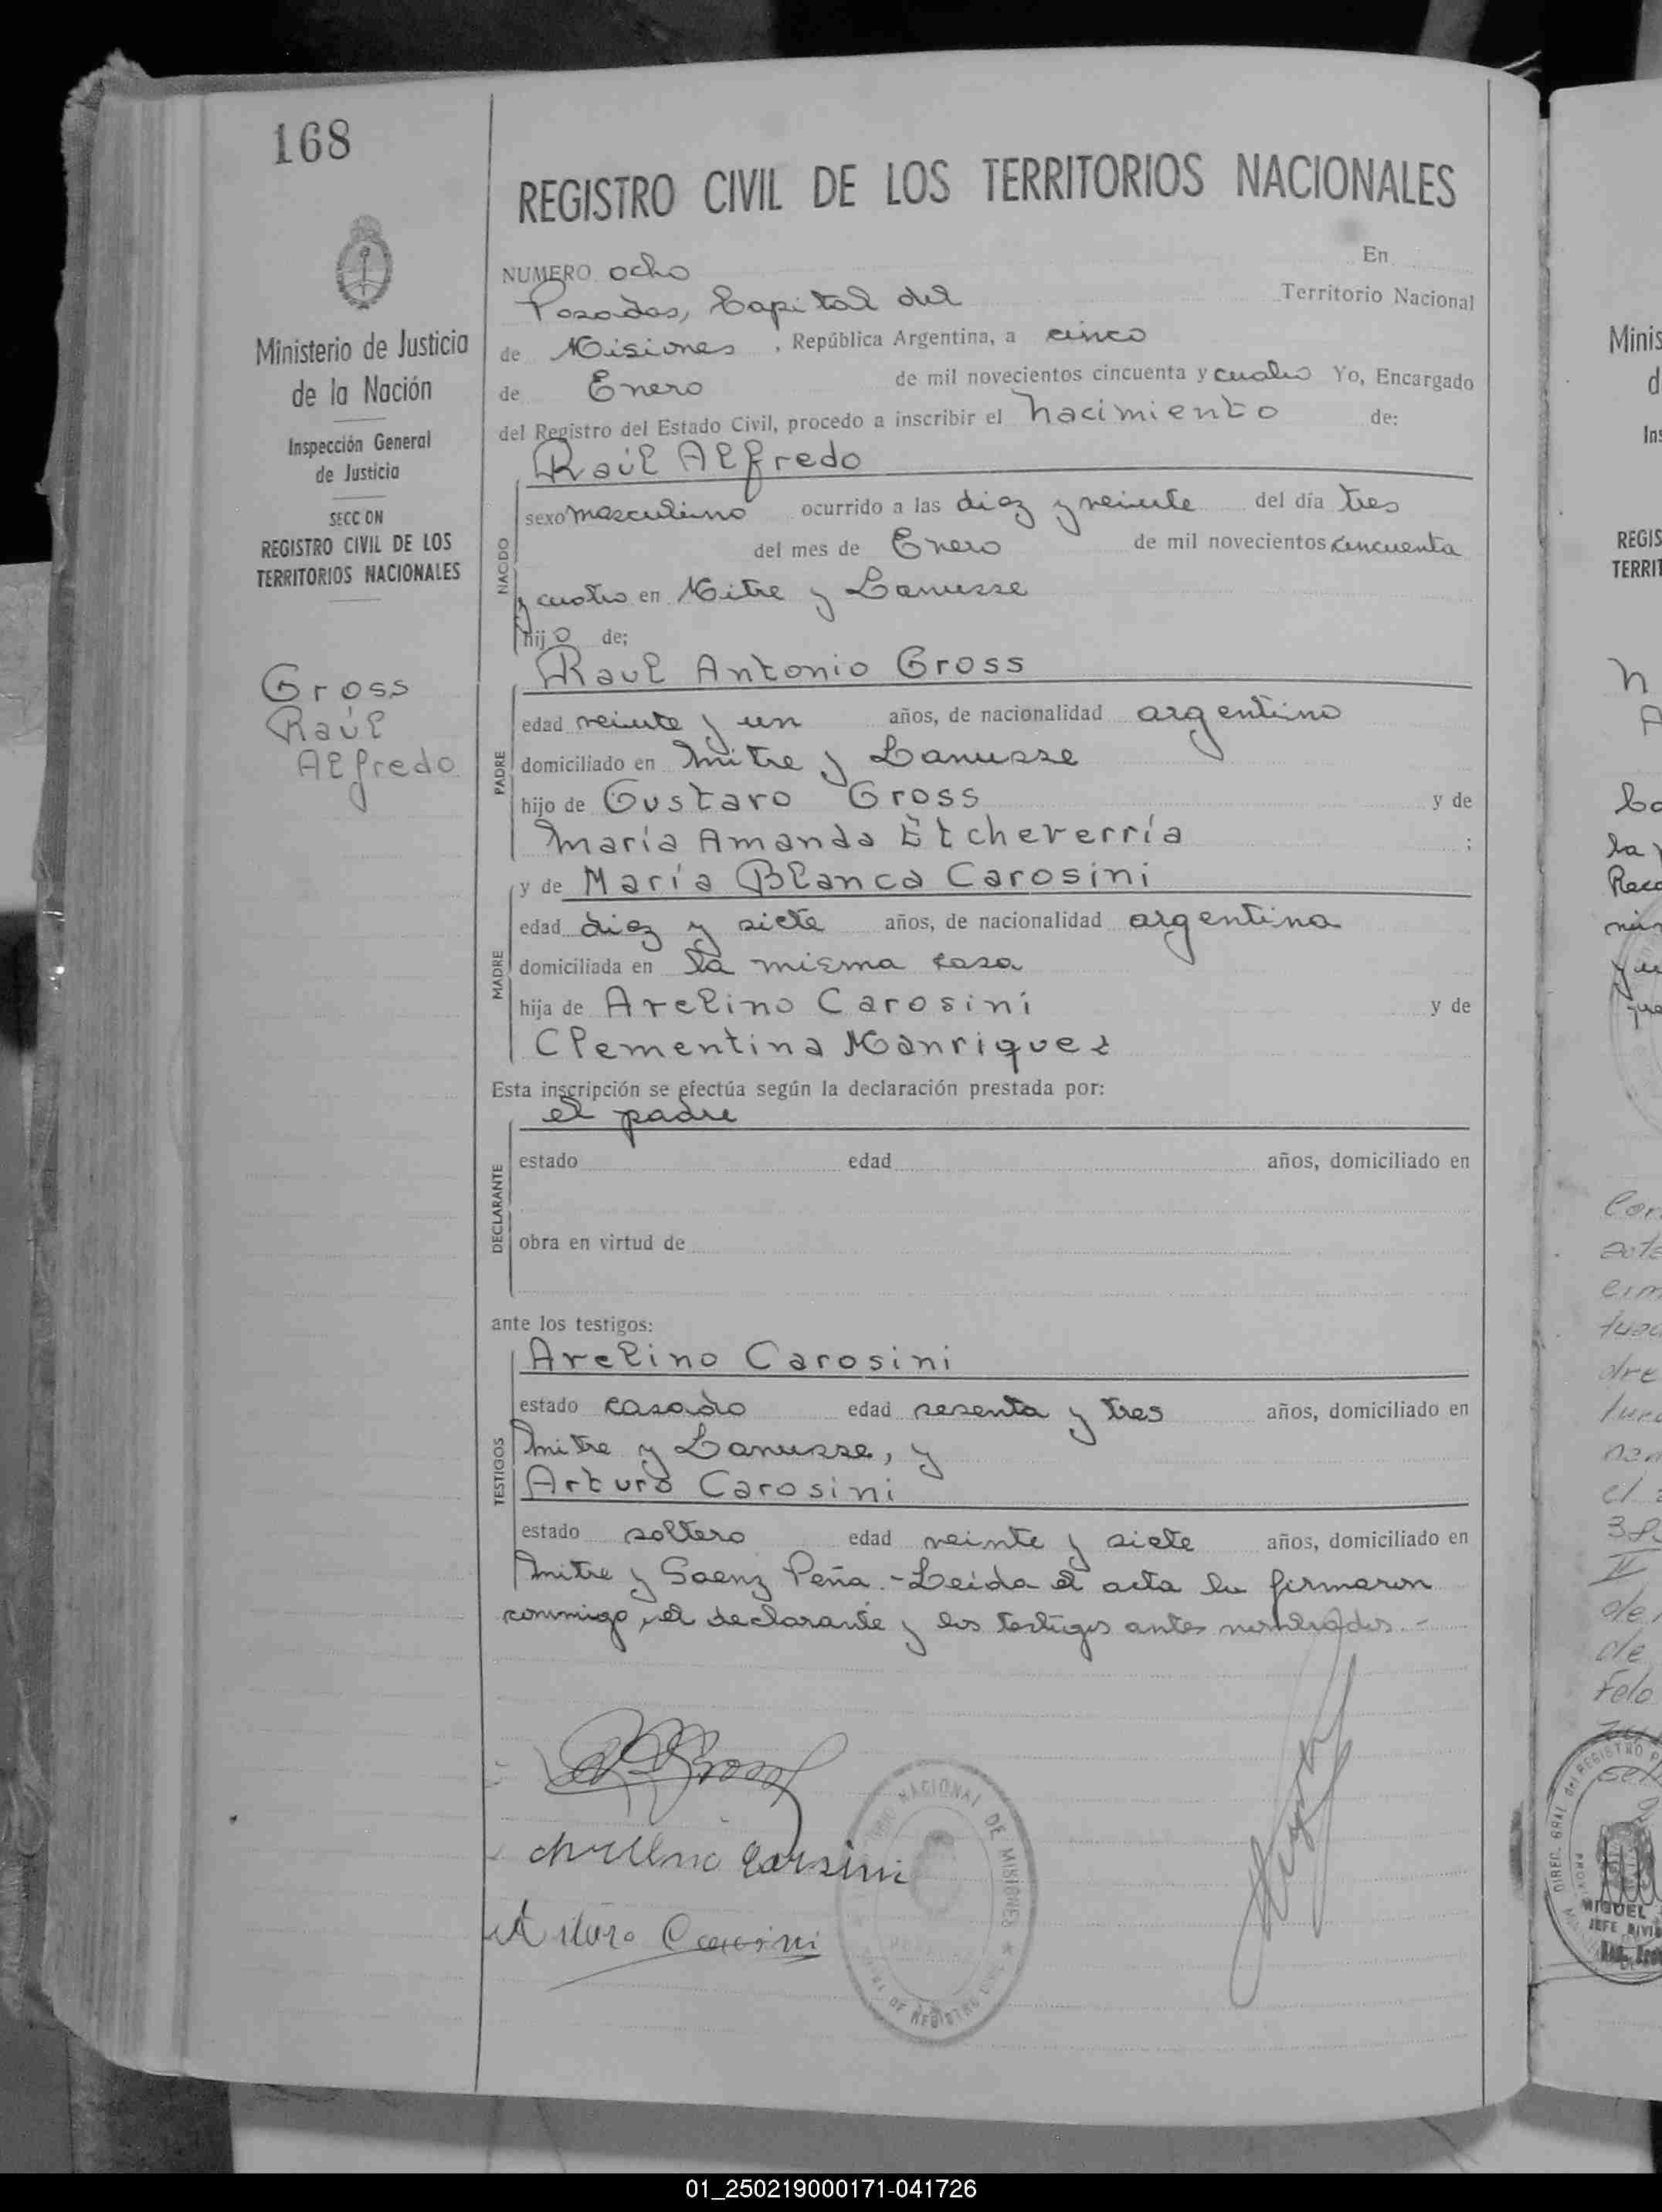 168
REGISTRO CIVIL DE LOS TERRITORIOS NACIONALES
Ministerio de Justicia
de la Nación
Inspección General
de Justicia
SECCION
REGISTRO CIVIL DE LOS
TERRITORIOS NACIONALES
Gross
Raúl
Alfredo
NUMERO ocho En
Posadas, Capital del Territorio Nacional
de Misiones, República Argentina, a cinco
de Enero de mil novecientos cincuenta y cuatro Yo, Encargado
del Registro del Estado Civil, procedo a inscribir el nacimiento de:
Raúl Alfredo
NACIDO
sexo masculino ocurrido a las diez y veinte del día tres
del mes de Enero de mil novecientos cincuenta
y cuatro en Mitre y Lanusse
hijo de;
Raul Antonio Gross
PADRE
edad veinte y un años, de nacionalidad argentino
domiciliado en Mitre y Lanusse
hijo de Gustavo Gross y de
María Amanda Etcheverría ;
y de María Blanca Carosini
MADRE
edad diez y siete años, de nacionalidad argentina
domiciliada en la misma casa
hija de Avelino Carosini y de
Clementina Manriquez
Esta inscripción se efectúa según la declaración prestada por:
el padre
DECLARANTE
estado edad años, domiciliado en
obra en virtud de
ante los testigos:
Avelino Carosini
TESTIGOS
estado casado edad sesenta y tres años, domiciliado en
Mitre y Lanusse, y
Arturo Carosini
estado soltero edad veinte y siete años, domiciliado en
Mitre y Saenz Peña.-Leída el acta la firmaron
conmigo, el declarante y los testigos antes nombrados.-
Avelino Carosini
Arturo Carosini
NACIONAL DE MISIONES
DE REGISTRO CIVIL
Minis
REGIS
TERRIT
DIREC. GRAL del REGISTRO P
MIGUEL
JEFE DIVIS
01_250219000171-041726